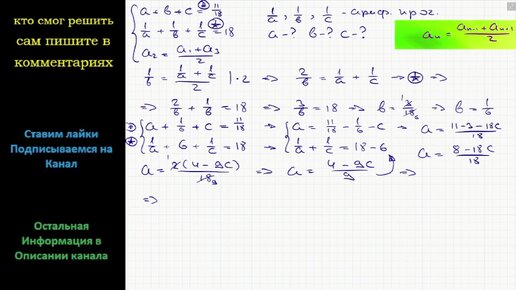 кто смог решить
сам пишите в
комментариях
Ставим лайки
Подписываемся на
Канал
Остальная
Информация в
Описании канала
{ a + b + c = 11/18
1/a + 1/b + 1/c = 18
a₂ = (a₁ + a₃)/2
1/a, 1/b, 1/c - ариф. прог.
a - ? b - ? c - ?
aₙ = (aₙ₋₁ + aₙ₊₁)/2
1/b = (1/a + 1/c)/2 | · 2 ⇒ 2/b = 1/a + 1/c → ⊛ ⇒
⇒ 2/b + 1/b = 18 ⇒ 3/b = 18 ⇒ b = 3/18 ⇒ b = 1/6
{ a + 1/6 + c = 11/18 ⇒ { a = 11/18 - 1/6 - c → a = (11 - 3 - 18c)/18
{ 1/a + 6 + 1/c = 18 { 1/a + 1/c = 18 - 6 a = (8 - 18c)/18
a = 2(4 - 9c)/18 ⇒ a = (4 - 9c)/9 ⇒
⇒